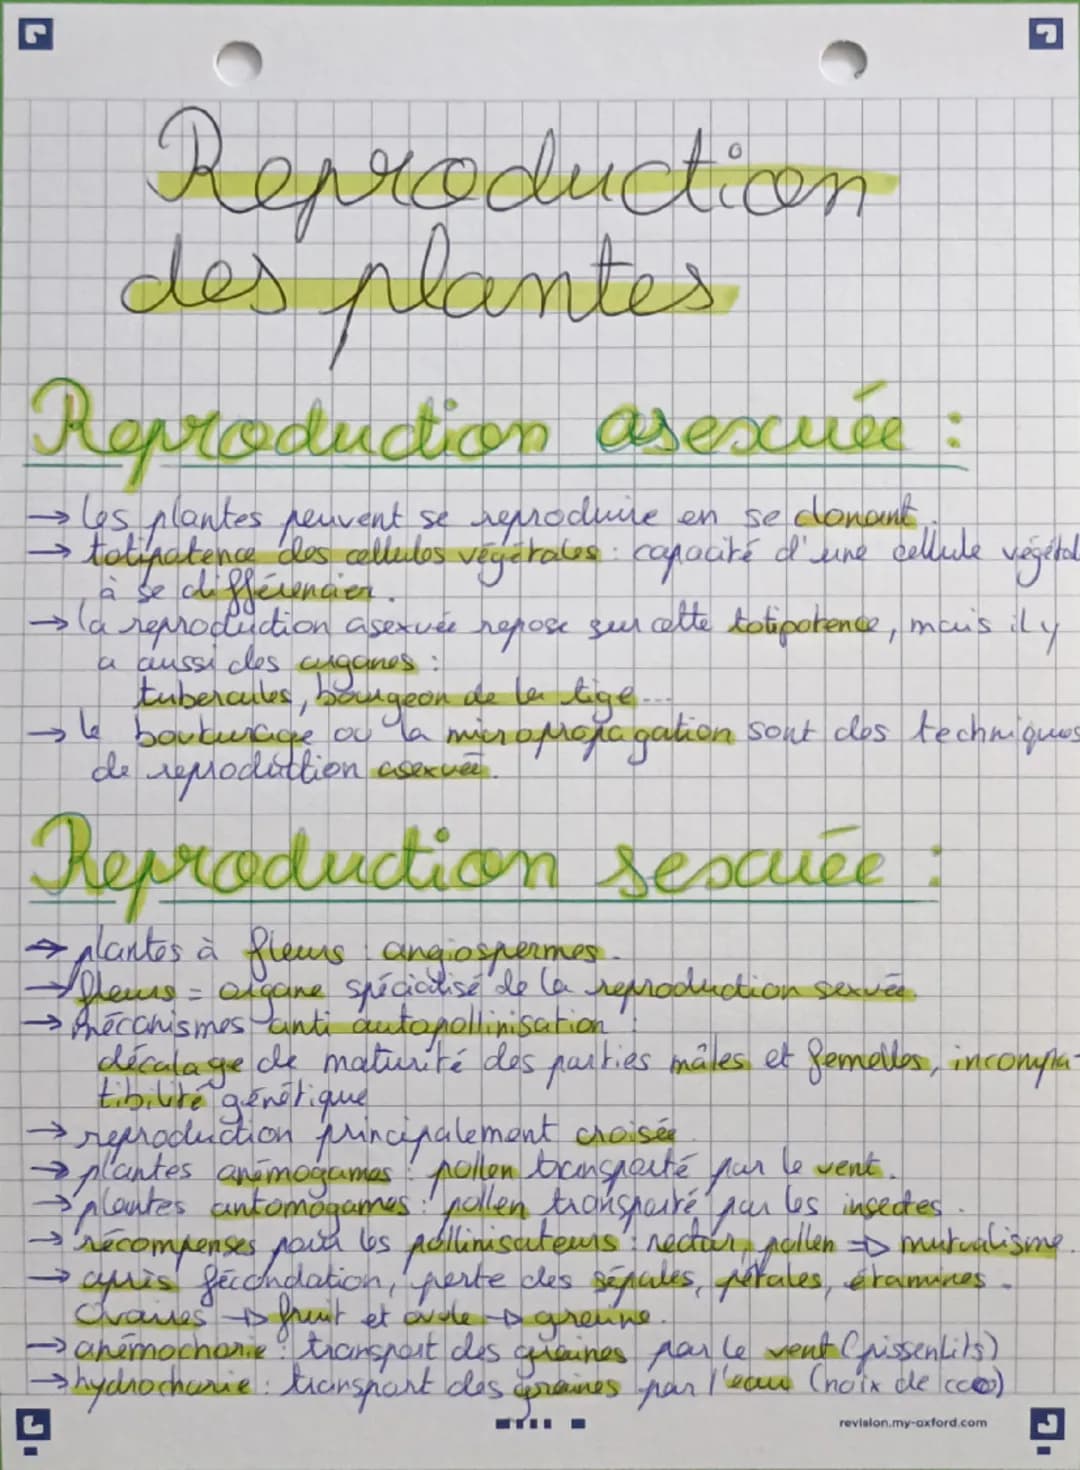 Reproduction
des plantes
Reproduction asexuée :
→ les plantes peuvent se reproduire en se clonant.
→ totipotence des cellules végétales : capacité d'une cellule végétal
à se différencier.
→ la reproduction asexuée repose sur cette totipotence, mais il y
a aussi des organes :
tubercules, bourgeon de la tige...
→ le bouturage ou la micropropagation sont des techniques
de reproduction asexuée.
Reproduction sexuée :
→ plantes à fleurs : angiospermes.
→ fleurs = organe spécialisé de la reproduction sexuée.
→ Mécanismes anti autopollinisation :
décalage de maturité des parties mâles et femelles, incompa-
tibilité génétique
→ reproduction principalement croisée.
→ plantes anémogames : pollen transporté par le vent.
→ plantes entomogames : pollen transporté par les insectes.
→ récompenses pour les pollinisateurs : nectar, pollen ⇒ mutualisme.
→ après fécondation, perte des sépales, pétales, étamines.
Ovaires → fruit et ovule → graine.
→ anémochorie : transport des graines par le vent (pissenlits)
→ hydrochorie : transport des graines par l'eau (noix de coco)
revision.my-oxford.com